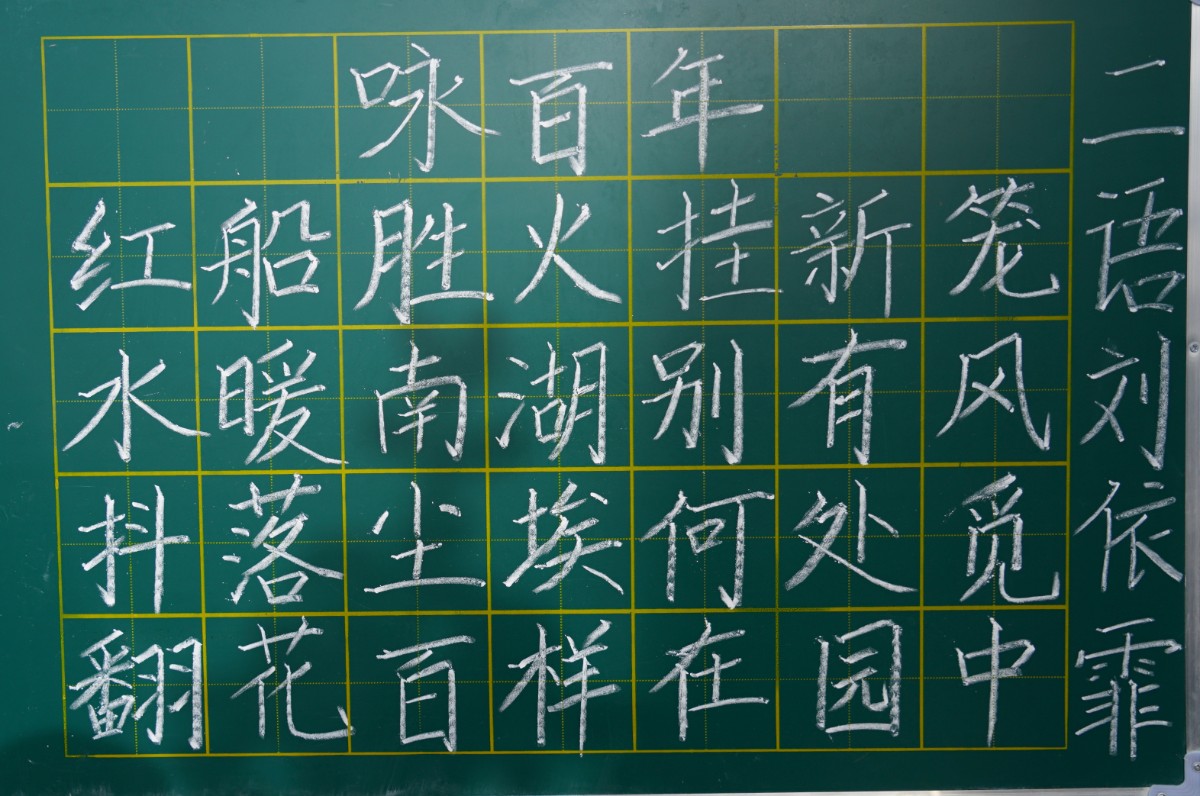 咏百年
红船胜火挂新笼
水暖南湖别有风
抖落尘埃何处觅
翻花百样在园中
二语刘依霏